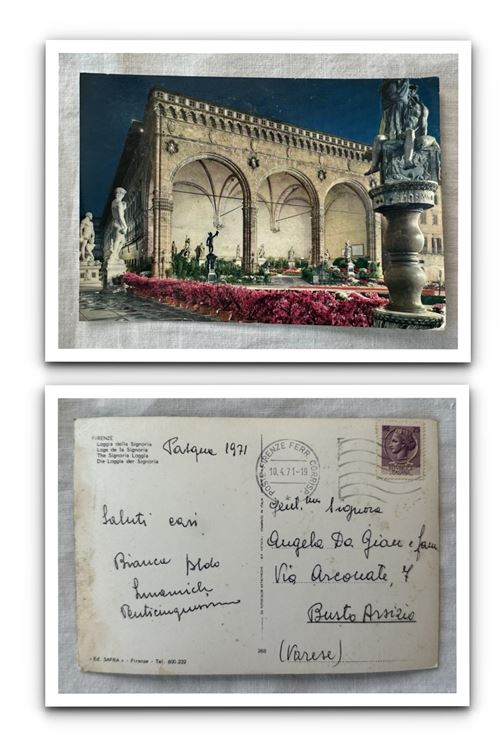 FIRENZE
Loggia della Signoria
Loge de la Signoria
The Signoria Loggia
Die Loggia der Signoria
Pasqua 1971
Saluti cari
Bianca Aldo
POSTE FIRENZE FERR. CORRISP.
10.4.71-19
Gent.ma Signora
Angela Da Gian e fam
Via Arconate, 7
Busto Arsizio
(Varese)
« Ed. SAFRA » - Firenze - Tel. 600.222
268